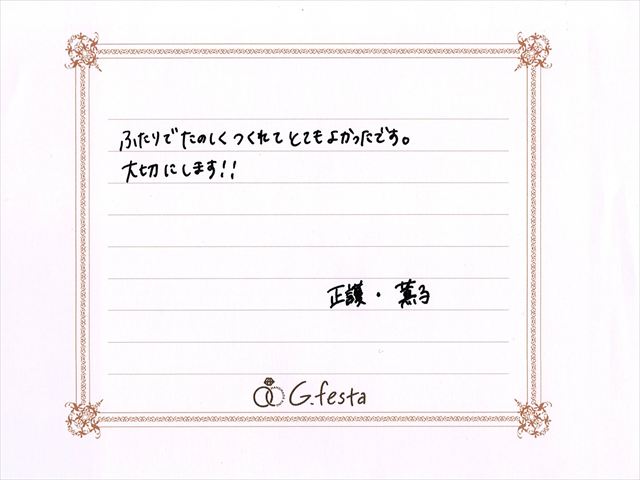 ふたりでたのしくつくれてとてもよかったです。
大切にします!!
正護・薫子
G.festa